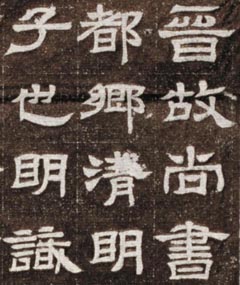 晉故尚書
都鄉清明
子也明識